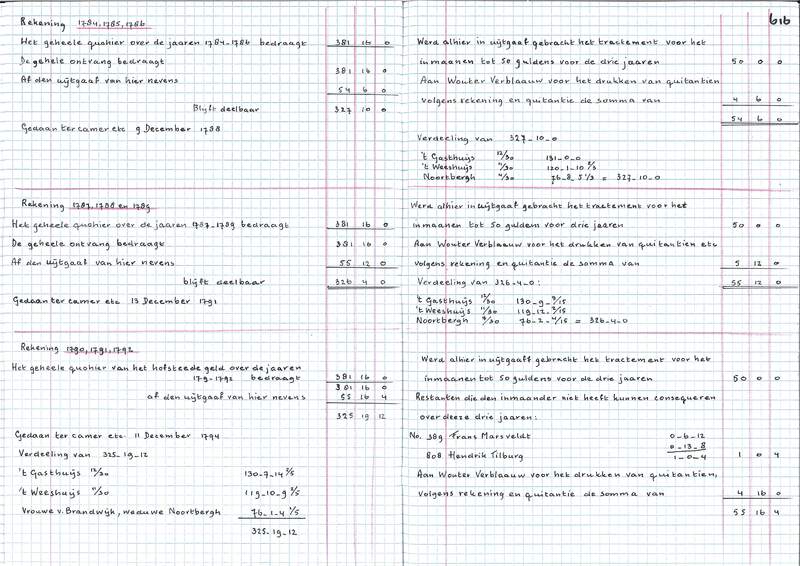 Rekening 1784, 1785, 1786
Het geheele quohier over de jaaren 1784-1786 bedraagt 381 16 0
De gehele ontvang bedraagt 381 16 0
Af den uijtgaaf van hier nevens 54 6 0
Blijft deelbaar 327 10 0
Gedaan ter camer etc 9 December 1788
Rekening 1787, 1788 en 1789
Het geheele quohier over de jaaren 1787-1789 bedraagt 381 16 0
De geheele ontvang bedraagt 381 16 0
Af den uijtgaaf van hier nevens 55 12 0
blijft deelbaar 326 4 0
Gedaan ter camer etc 13 December 1791
Rekening 1790, 1791, 1792
Het geheele quohier van het hofsteede geld over de jaaren
179-1792 bedraagt 381 16 0
381 16 0
af den uijtgaaf van hier nevens 55 16 4
325 19 12
Gedaan ter camer etc 11 December 1794
Verdeeling van 325-19-12
't Gasthuijs 12/30 130-7-14 2/5
't Weeshuijs 11/30 119-10-9 2/5
Vrouwe v. Brandwijk, weduwe Noortbergh 76-1-4 1/5
325-19-12
616
Werd alhier in uijtgaaf gebracht het tractement voor het
inmaanen tot 50 guldens voor de drie jaaren 50 0 0
Aan Wouter Verblaauw voor het drukken van quitantien
volgens rekening en quitantie de somma van 4 6 0
54 6 0
Verdeeling van 327-10-0
't Gasthuijs 12/30 131-0-0
't Weeshuijs 11/30 120-1-10 2/3
Noortbergh 7/30 76-8-5 1/3 = 327-10-0
Werd alhier in uijtgaaf gebracht het tractement voor het
inmaanen tot 50 guldens voor drie jaaren 50 0 0
Aan Wouter Verblaauw voor het drukken van quitantien etc
volgens rekening en quitantie de somma van 5 12 0
Verdeeling van 326-4-0: 55 12 0
't Gasthuijs 12/30 130-9-9/15
't Weeshuijs 11/30 119-12-2/15
Noortbergh 7/30 76-2-4/15 = 326-4-0
Werd alhier in uijtgaaff gebracht het tractement voor het
inmaanen tot 50 guldens voor de drie jaaren 50 0 0
Restanten die den inmaander niet heeft kunnen consequeren
over deeze drie jaaren:
No. 389 Frans Marsveldt 0-6-12
0-13-8
808 Hendrik Tilburg 1-0-4 1 0 4
Aan Wouter Verblaauw voor het drukken van quitantien,
volgens rekening en quitantie de somma van 4 16 0
55 16 4